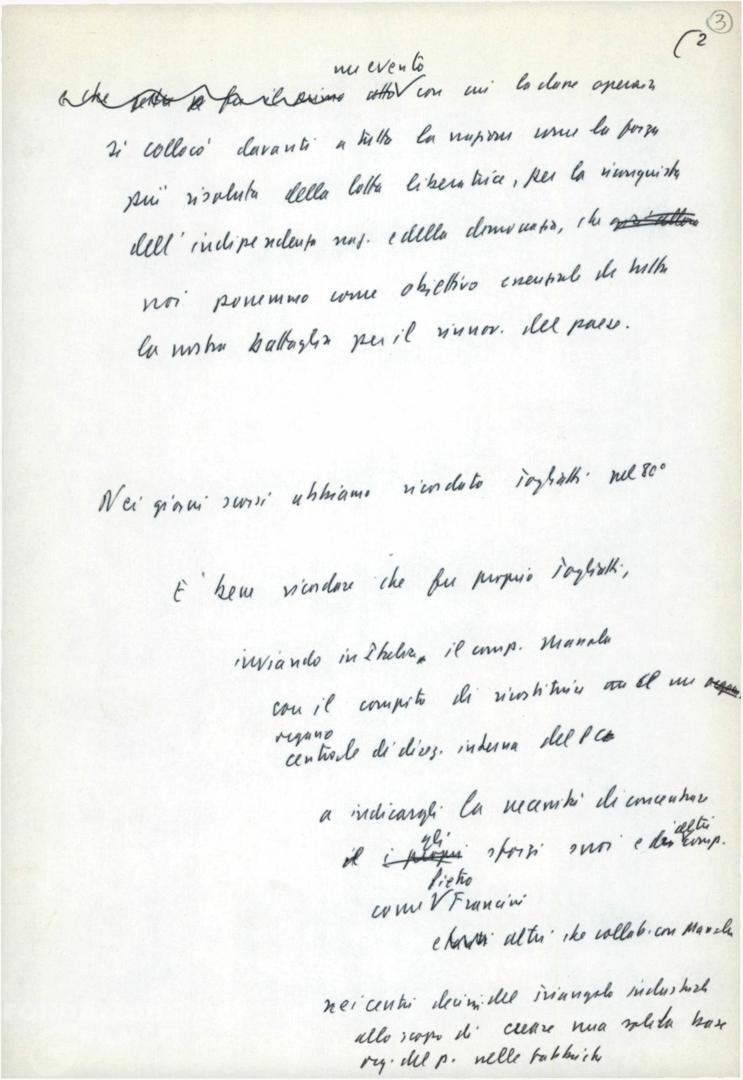 3
2
un evento
e che fu il primo atto con cui la classe operaia
si collocò davanti a tutta la nazione come la forza
più risoluta della lotta liberatrice, per la riconquista
dell'indipendenza naz. e della democrazia, che
noi ponemmo come obiettivo essenziale di tutta
la nostra battaglia per il rinnov. del paese.
Nei giorni scorsi abbiamo ricordato Togliatti nel 80°
E' bene ricordare che fu proprio Togliatti,
inviando in Italia il comp. Massola
con il compito di ricostituire un
organo
centrale di direz. interna del PC
a indicargli la necessità di concentrare
gli altri
i propri sforzi suoi e dei comp.
Pietro
come Francini
e altri che collab. con Massola
nei centri decisi. del triangolo industriale
allo scopo di creare una solida base
org. del p. nelle fabbriche